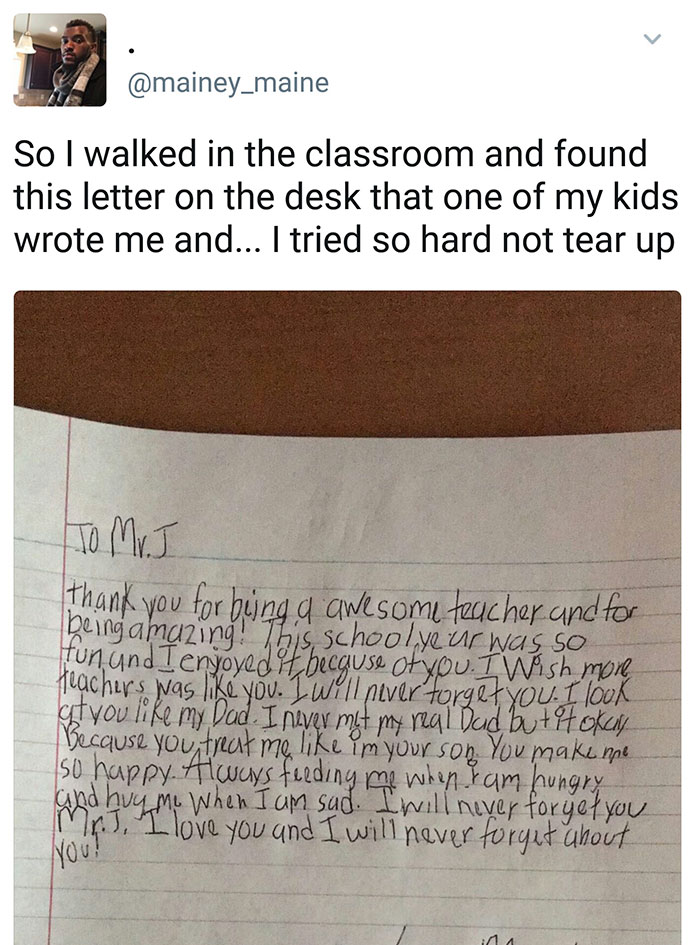 .
@mainey_maine
So I walked in the classroom and found
this letter on the desk that one of my kids
wrote me and... I tried so hard not tear up
To Mr. J
thank you for being a awesome teacher and for
being amazing! This school year was so
fun and I enjoyed it because of you. I wish more
teachers was like you. I will never forget you. I look
at you like my Dad. I never met my real Dad but it okay
Because you treat me like im your son. You make me
so happy. Always feeding me when I am hungry
and huy me when I am sad. I will never forget you
Mr. J. I love you and I will never forget about
you!